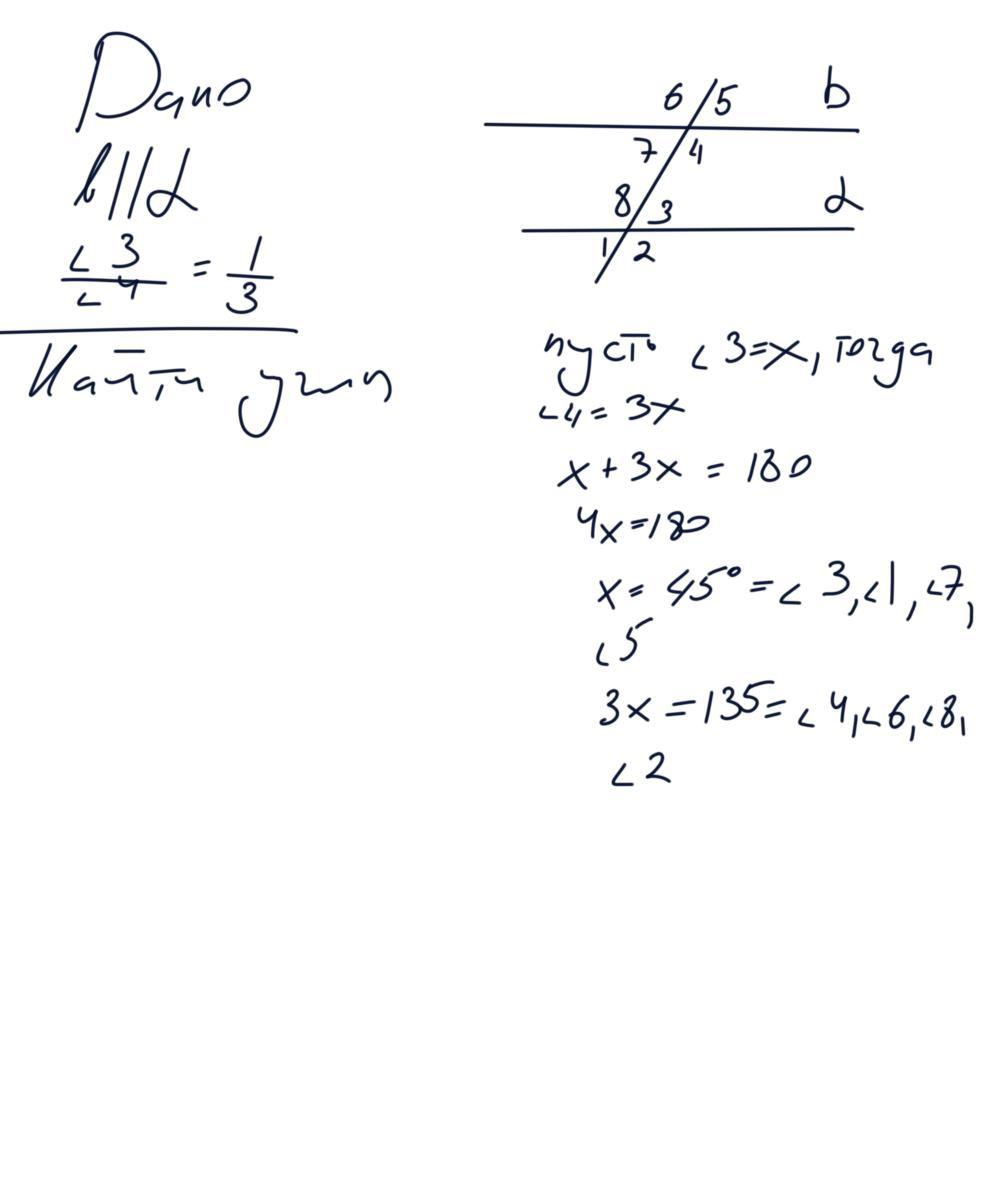 Дано
b||d
∠3/∠4 = 1/3
Найти углы
6 5 b
7 4
8 3 d
1 2
пусть ∠3=x, тогда
∠4= 3x
x + 3x = 180
4x=180
x= 45° = ∠3, ∠1, ∠7,
∠5
3x = 135 = ∠4, ∠6, ∠8,
∠2